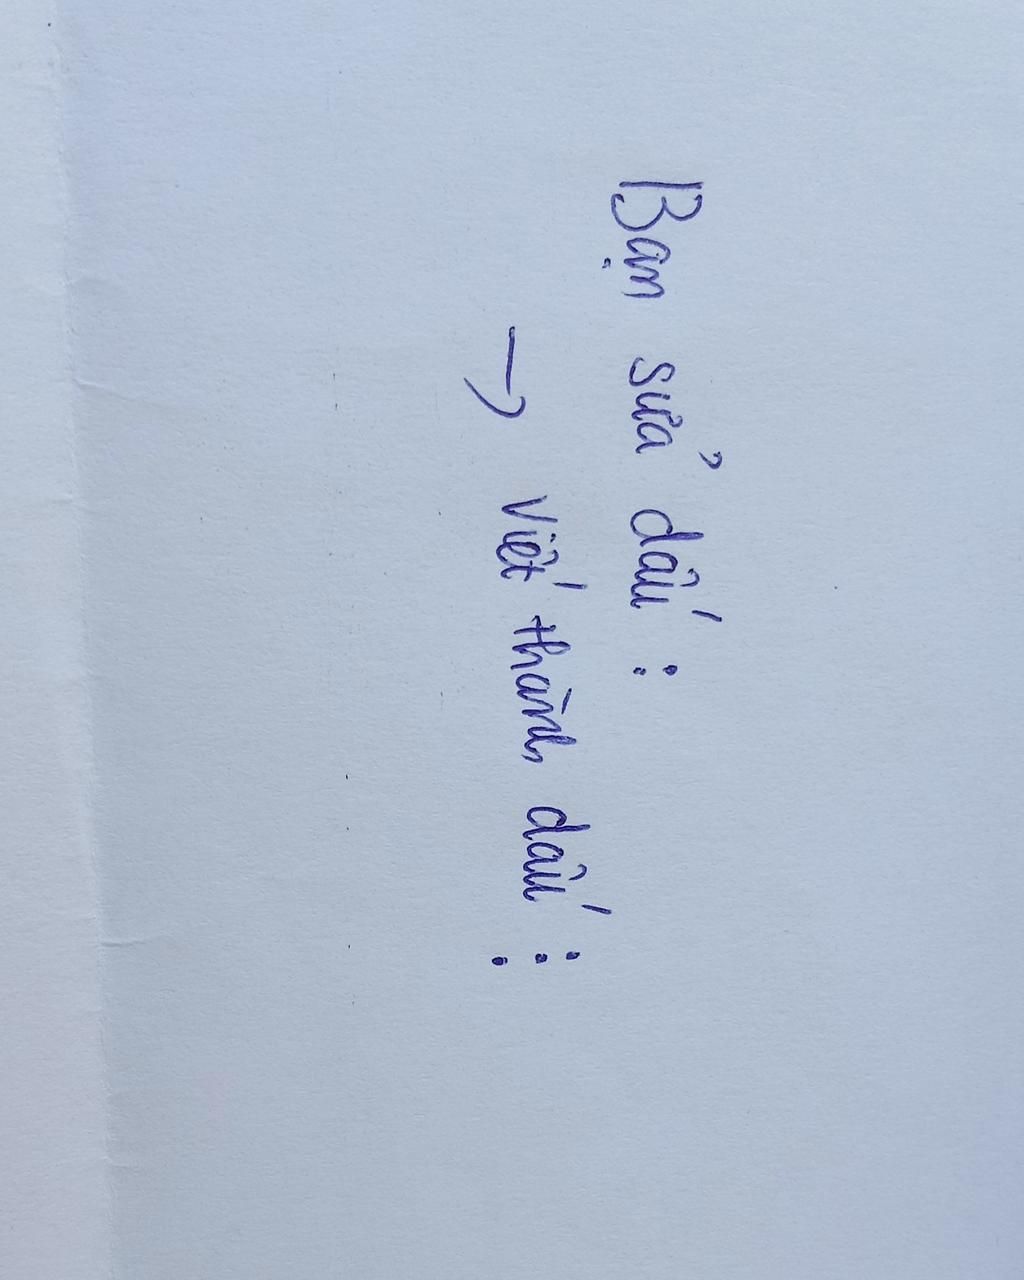 Bạn sửa dấu :
→ Viết thành dấu ⋮